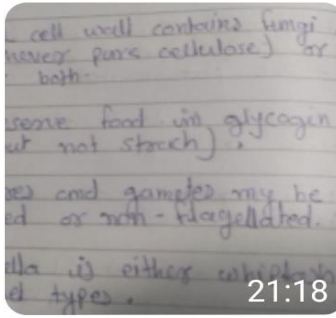 cell wall contains fungi
never pure cellulose) or
both.
food in glycogen
not strach).
and gametes my be
ed or non-flagellated.
lla is either
types.
21:18